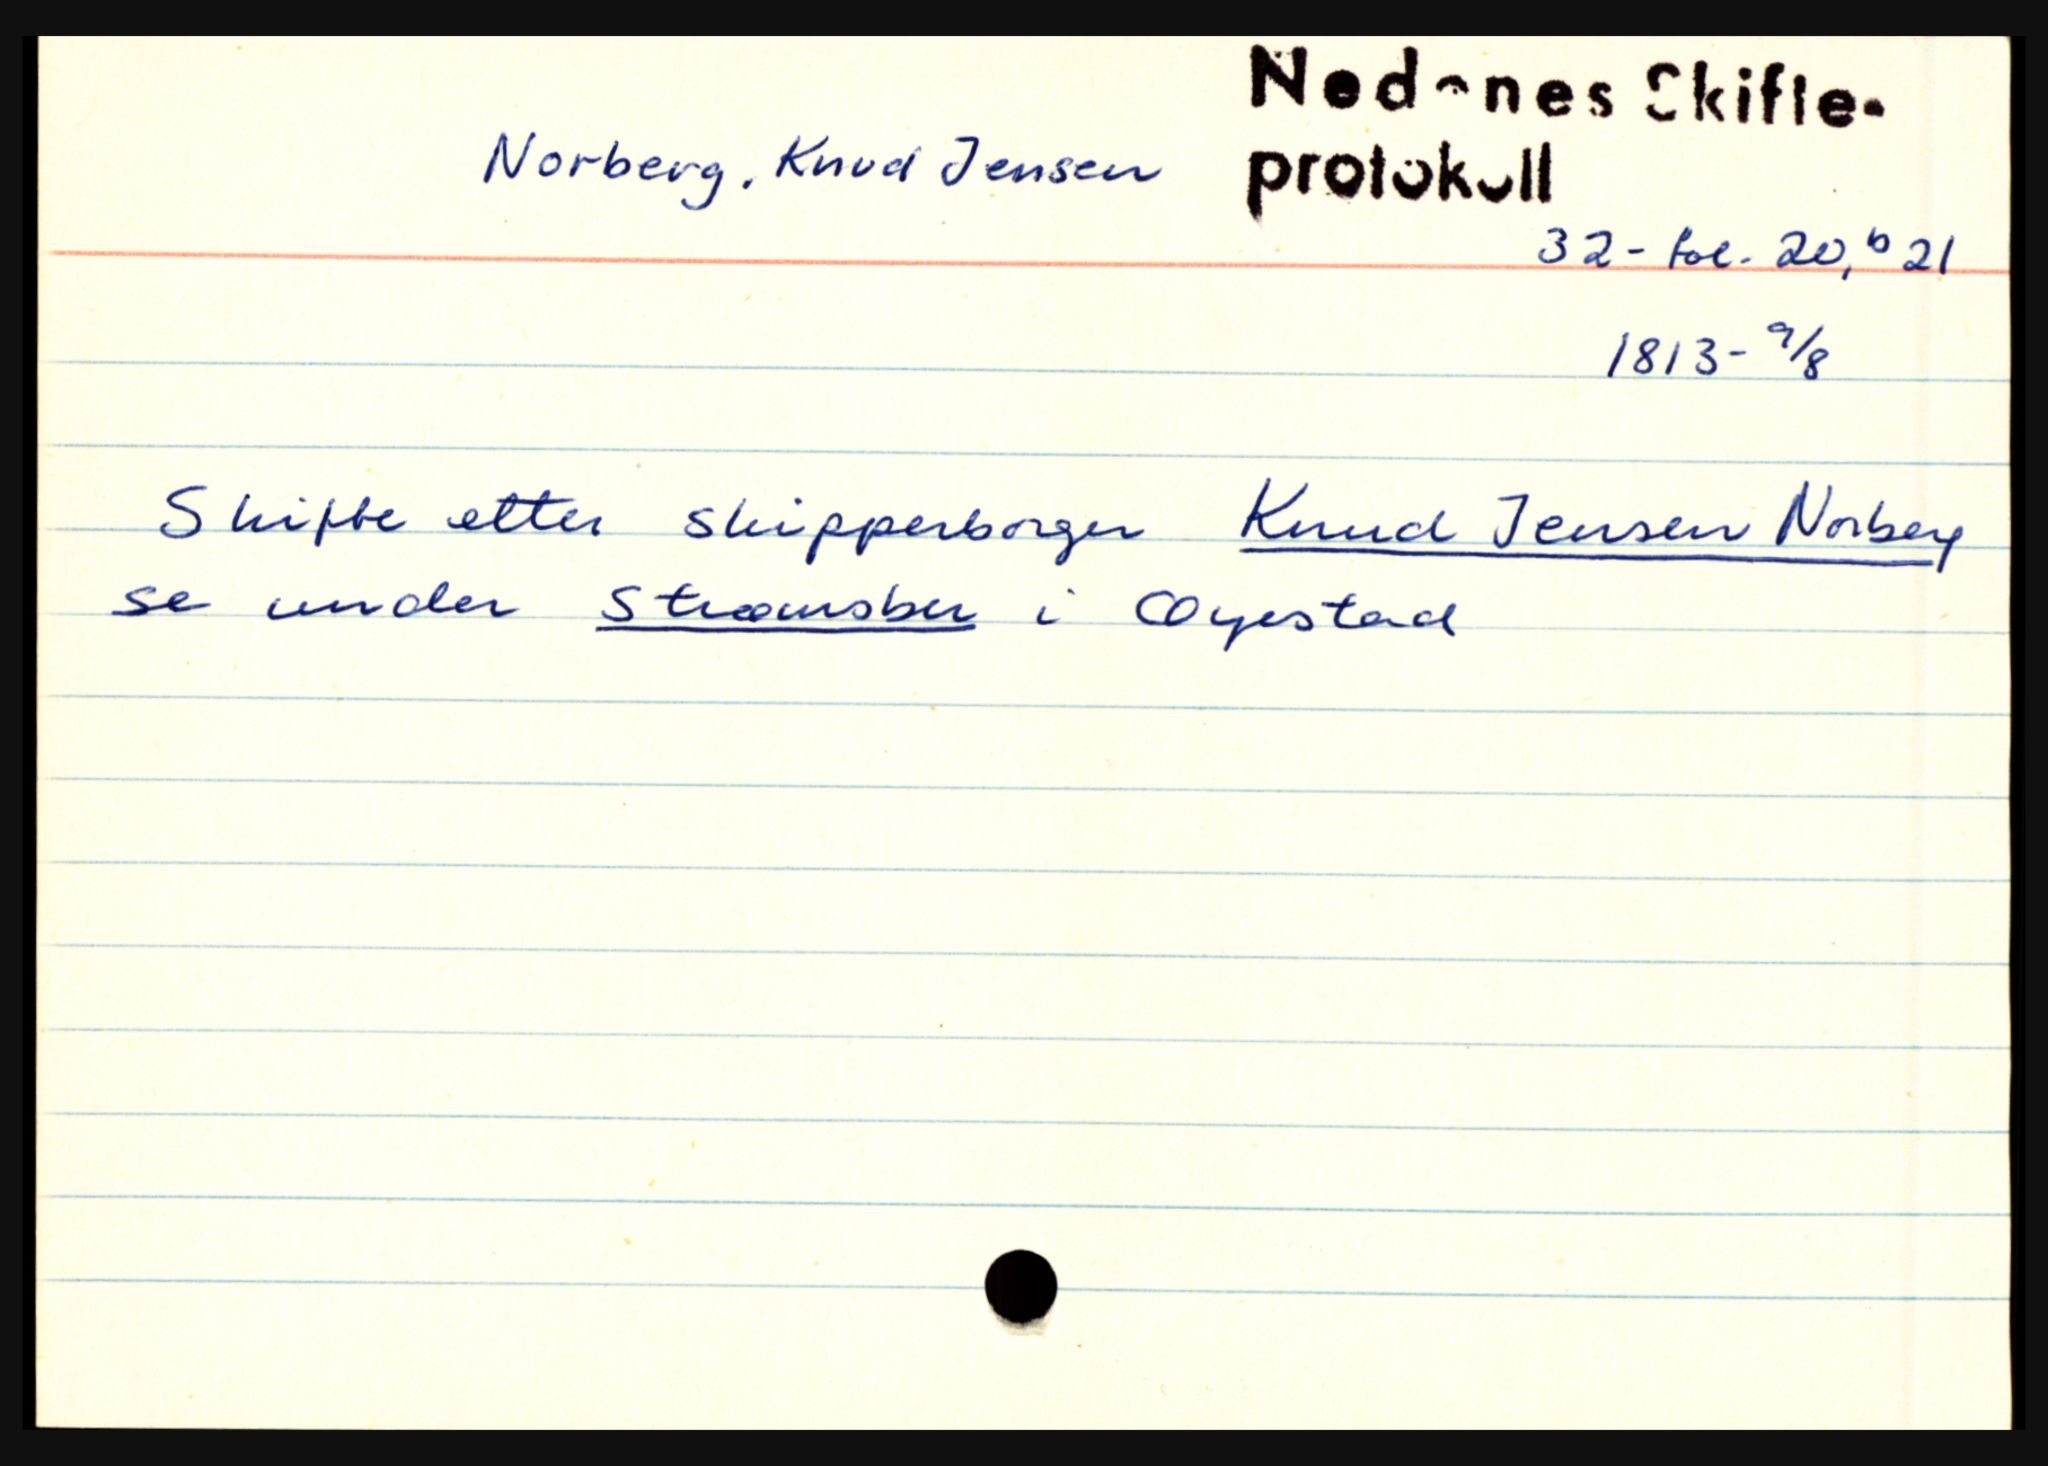 Nedenes Skifte-
protokoll
Norberg. Knud Jensen
32 - fol. 20, b 21
1813 - 9/8
Skifte etter skipperborger Knud Jensen Norberg
se under Stræmsbu i Øyestad